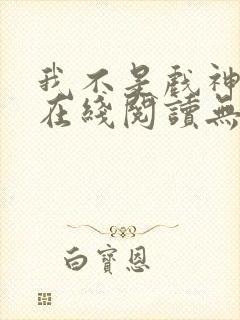 我不是戲神
在綫閱讀無
白寶恩